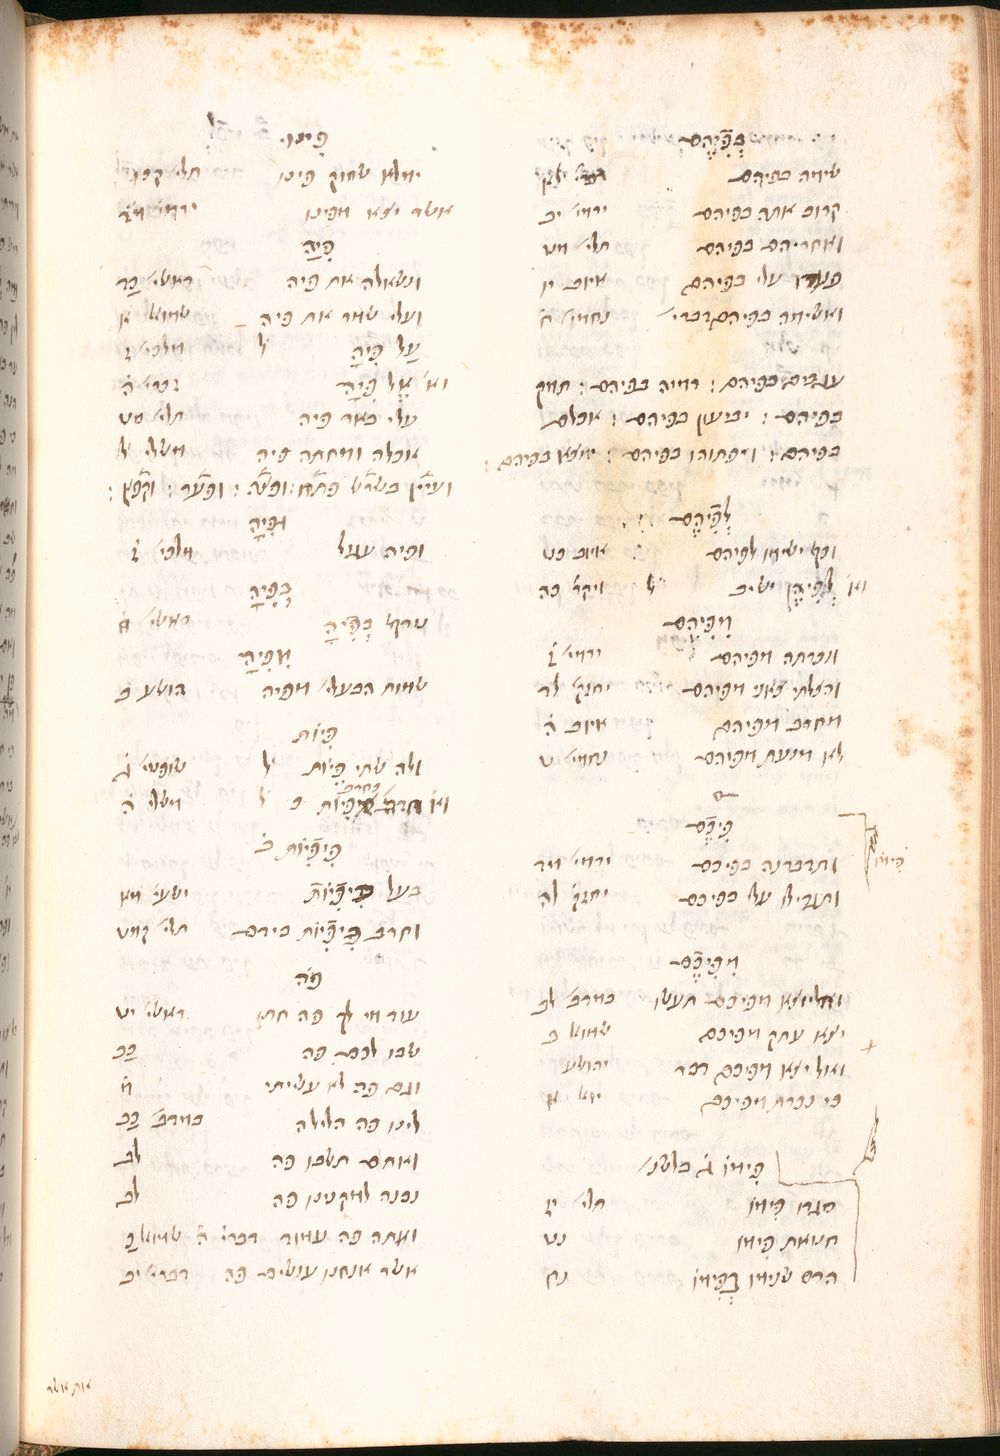 בְּפִיהֶם
שימה בפיהם
קרוב אתה בפיהם ירמי׳ יב
ואחריהם בפיהם תלי׳ מט
פערו עלי בפיהם איוב יו
ואשימה בפיהם דברי׳ נחמי׳
ענבים בפיהם : רמיה בפיהם : תמק
בפיהם : יביעון בפיהם : אכלם
בפיהם : ויפתוהו בפיהם : ימצא בפיהם :
לְפִיהֶם
וכף ישימו לפיהם איוב כט
וא׳ לְפִיהֶן ישיב ל׳ ויקר׳ כה
מִפִּיהֶם
ונכרתה מפיהם ירמי׳ ז
והצלתי צאני מפיהם יחזק׳ לד
מחרב מפיהם איוב ה
לא מנעת מפיהם נחמי׳ ט
פִּיכֶם
ותדברנה בפיכם ירמי׳ מד
ותגדילו עלי בפיכם יחזק׳ לה
מִפִּיכֶם
והיוצא מפיכם תעשו במדב׳ לב
יצא עתק מפיכם שמוא ב
ולא יצא מפיכם דבר יהושע
כי נכרת מפיכם יוא׳ א
פִּימוֹ ג׳ בלשנ׳
סגרו פימו תלי׳ יז
חטאת פימו נט
הרס שנימו בְּפִימוֹ נח
פימו
פִּינוּ
ימלא שחוק פינו תלי׳ קכו
אשר יצא מפינו ירמי׳ מד
פִּיהָ
ונשאלה את פיה ראשי׳ כד
ועלי שמר את פיה שמוא׳ א
עַל פִּיהָ ל׳
וא׳ אֶל פִּיהָ זכרי׳ ה
עלי באר פיה תלי׳ סט
אכלה ומחתה פיה משלי ל
ועיין בשרש פתח : ופצה : ופער : וקפץ :
וּפִיהָ
ופיה עגל מלכי׳
בְּפִיהָ
טרף בְּפִיהָ ראשי׳ ח
מִפִּיהָ
שמות הבעלי׳ מפיה הושע ב
פֵּיוֹת
ולה שני פֵיוֹת ל׳ שופטי׳ ג
וא׳ כחרב פִּיּוֹת ל׳ משלי ה
פִּיפִיּוֹת ב׳
בעל פִּיפִיּוֹת ישעי׳ מא
וחרב פִּיפִיּוֹת בידם תלי׳ קמט
פֹּה
עוד מי לך פה חתן ראשי׳ יט
שבו לכם פה כב
וגם פה לא עשיתי מ
לינו פה הלילה במדב׳ כב
ואתם תשבו פה לב
נבנה למקנינו פה לב
ואתה פה עמוד דברי׳ ה
אשר אנחנו עושים פה דברי׳ יב
אות אשר